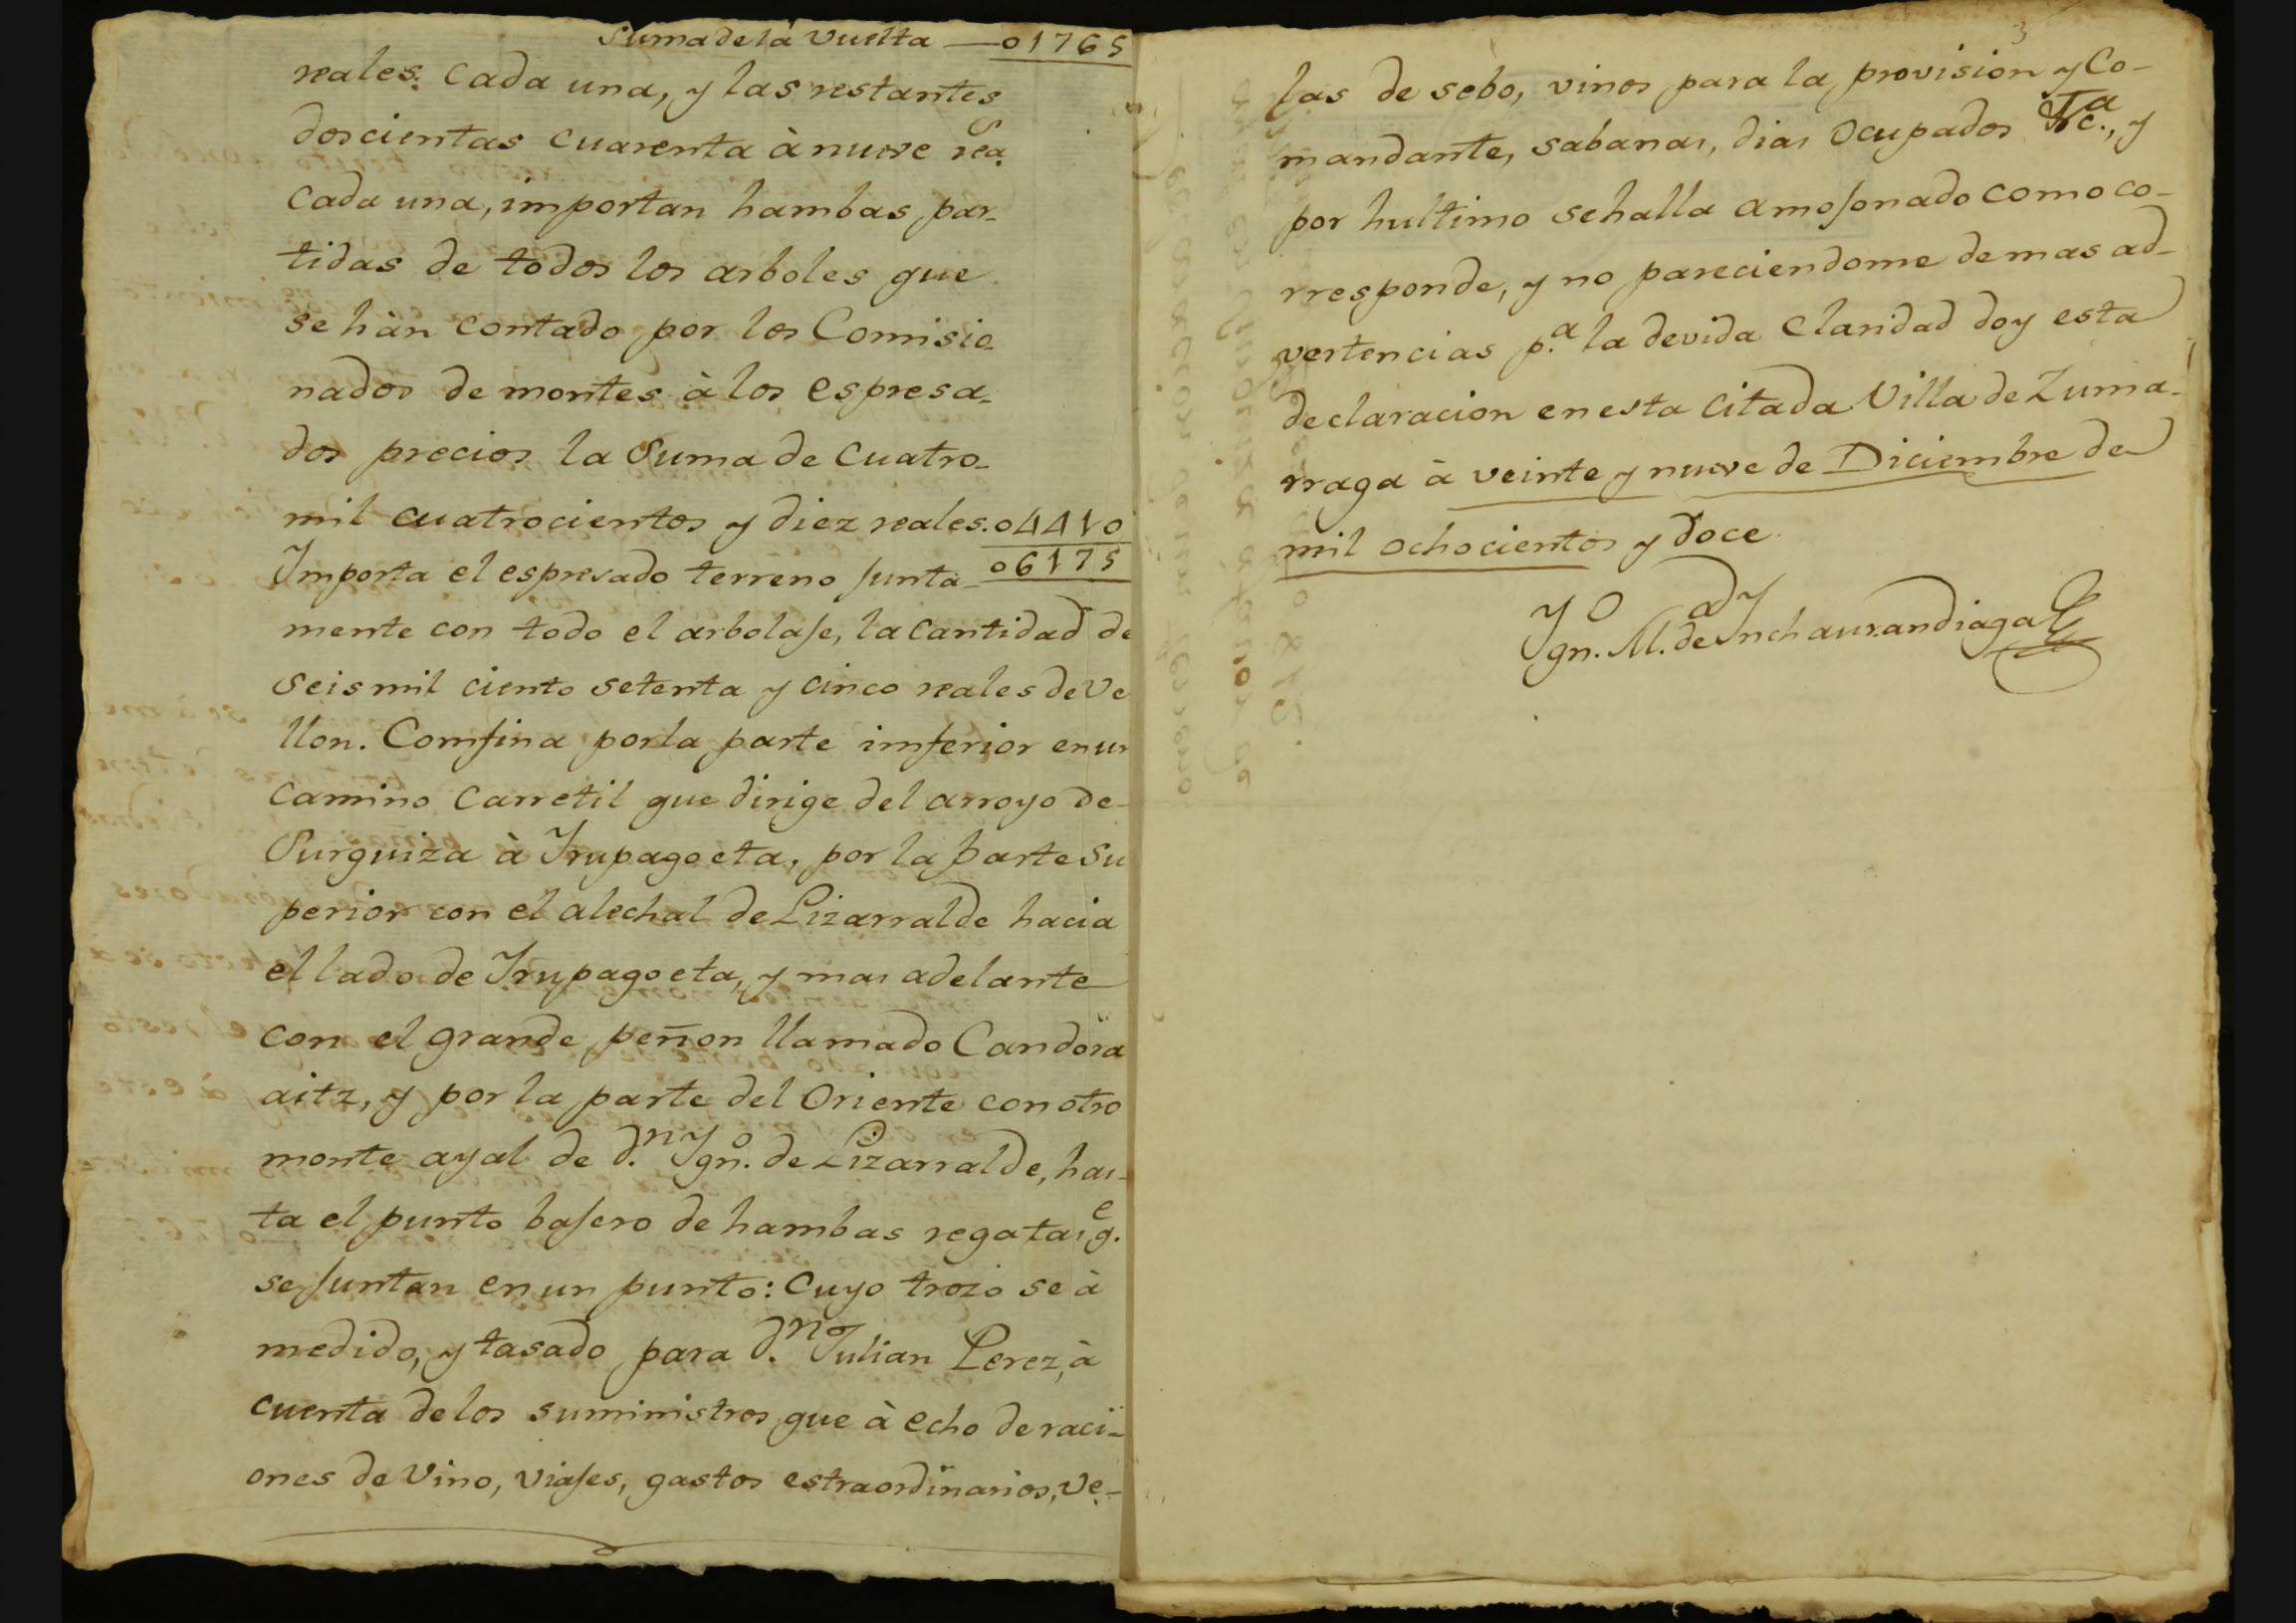 Suma de la Vuelta — 01765
reales. Cada una, y las restantes
doscientas cuarenta à nueve rea.s
Cada una, importan hambas par-
tidas de todos los arboles que
se hàn contado por los Comisio-
nados de montes à los espresa-
dos precios la Suma de Cuatro-
mil cuatrocientos y diez reales. 04410
Importa el espresado terreno junta- 06175
mente con todo el arbolaje, la Cantidad de
Seis mil ciento setenta y cinco reales de Ve
llon. Comfina por la parte imferior en un
Camino Carretil que dirige del arroyo de
Surguiza à Irupagoeta, por la parte Su
perior con el alechal de Lizarralde hacia
el lado de Irupagoeta, y mas adelante
con el grande peñon llamado Candora
aitz, y por la parte del Oriente con otro
monte ayal de d.n Ygn.o de Lizarralde, has-
ta el punto bajero de hambas regatas q.e
se juntan en un punto: Cuyo trozo se à
medido, y tasado para d.n Julian Perez, à
Cuenta de los suministros que à echo de raci-
ones de Vino, viajes, gastos estraordinarios, Ve-
3
las de sebo, vinos para la provision y Co-
mandante, sabanas, dias Ocupados &c.a, y
por hultimo se halla amojonado como co-
rresponde, y no pareciendome demas ad-
vertencias p.a la devida Claridad doy esta
declaracion en esta Citada Villa de Zuma-
rraga à veinte y nueve de Diciembre de
mil ochocientos y doce.
Ygn.o M.a de Ynchaurandiaga